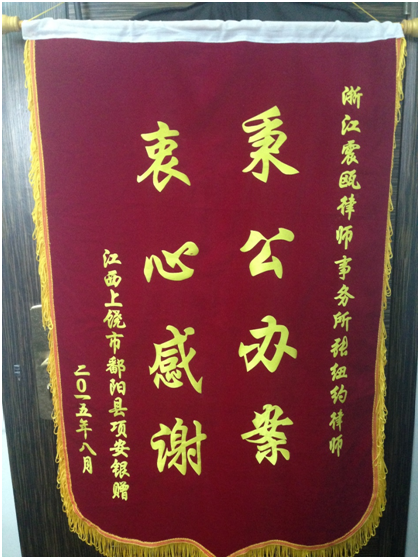 浙江震瓯律师事务所张纽约律师
秉公办案
衷心感谢
江西上饶市鄱阳县项安银赠
二〇一五年八月